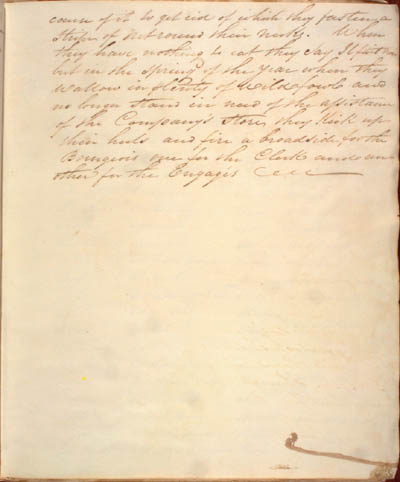 course of it to get rid of which they fasten a
Stripe of Net round their necks. When
they have nothing to eat they Say
but in the Spring of the Year when they
Wallow in plenty of Wildefowl and
no longer Stand in need of the assistance
of the Company's Store, they Kick up
their heels and fire a broadside for the
Bourgeois one for the Clerk and an
other for the Engagés